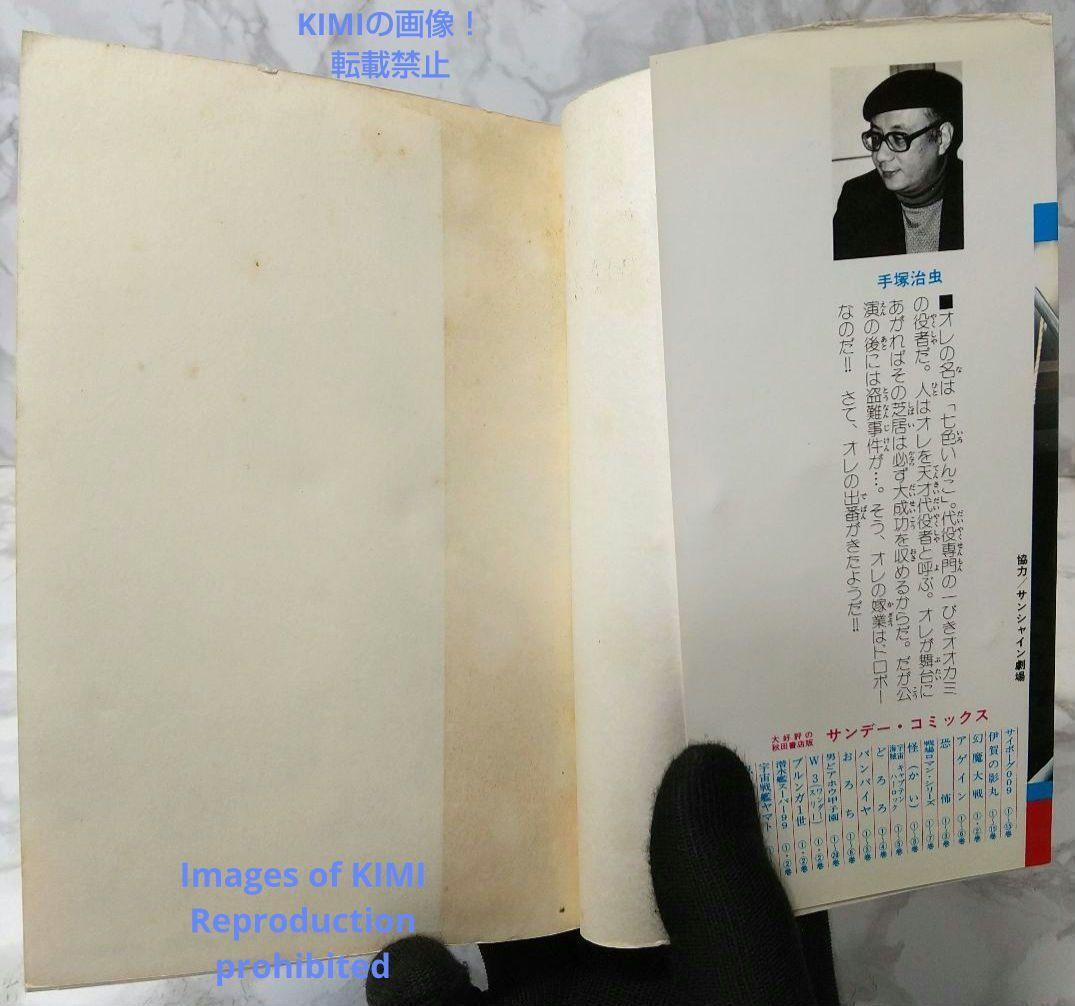 KIMIの画像！
転載禁止
手塚治虫
■オレの名は「七色いんこ」。代役専門の一ぴきオオカミ
の役者だ。人はオレを天才代役者と呼ぶ。オレが舞台に
あがればその芝居は必ず大成功を収めるからだ。だが公
演の後には盗難事件が…。そう、オレの嫁業は、ドロボー
なのだ!! さて、オレの出番がきたようだ!!
協力／サンシャイン劇場
大好評の
秋田書店版
サンデー・コミックス
サイボーグ009 ①〜⑮巻
伊賀の影丸 ①〜⑮巻
幻魔大戦 ①・②巻
アゲイン ①〜⑥巻
恐怖 ①〜④巻
戦場ロマン・シリーズ ①〜⑦巻
怪(かい) ①〜③巻
宇宙海賊キャプテンハーロック ①〜⑤巻
どろろ ①〜④巻
バンパイヤ ①〜③巻
おろち ①〜⑥巻
男どアホウ甲子園 ①〜㉘巻
W3(ワンダースリー) ①・②巻
ブルンガ1世 ①・②巻
潜水艦スーパー99 ①・②巻
宇宙戦艦ヤマト
Images of KIMI
Reproduction
prohibited